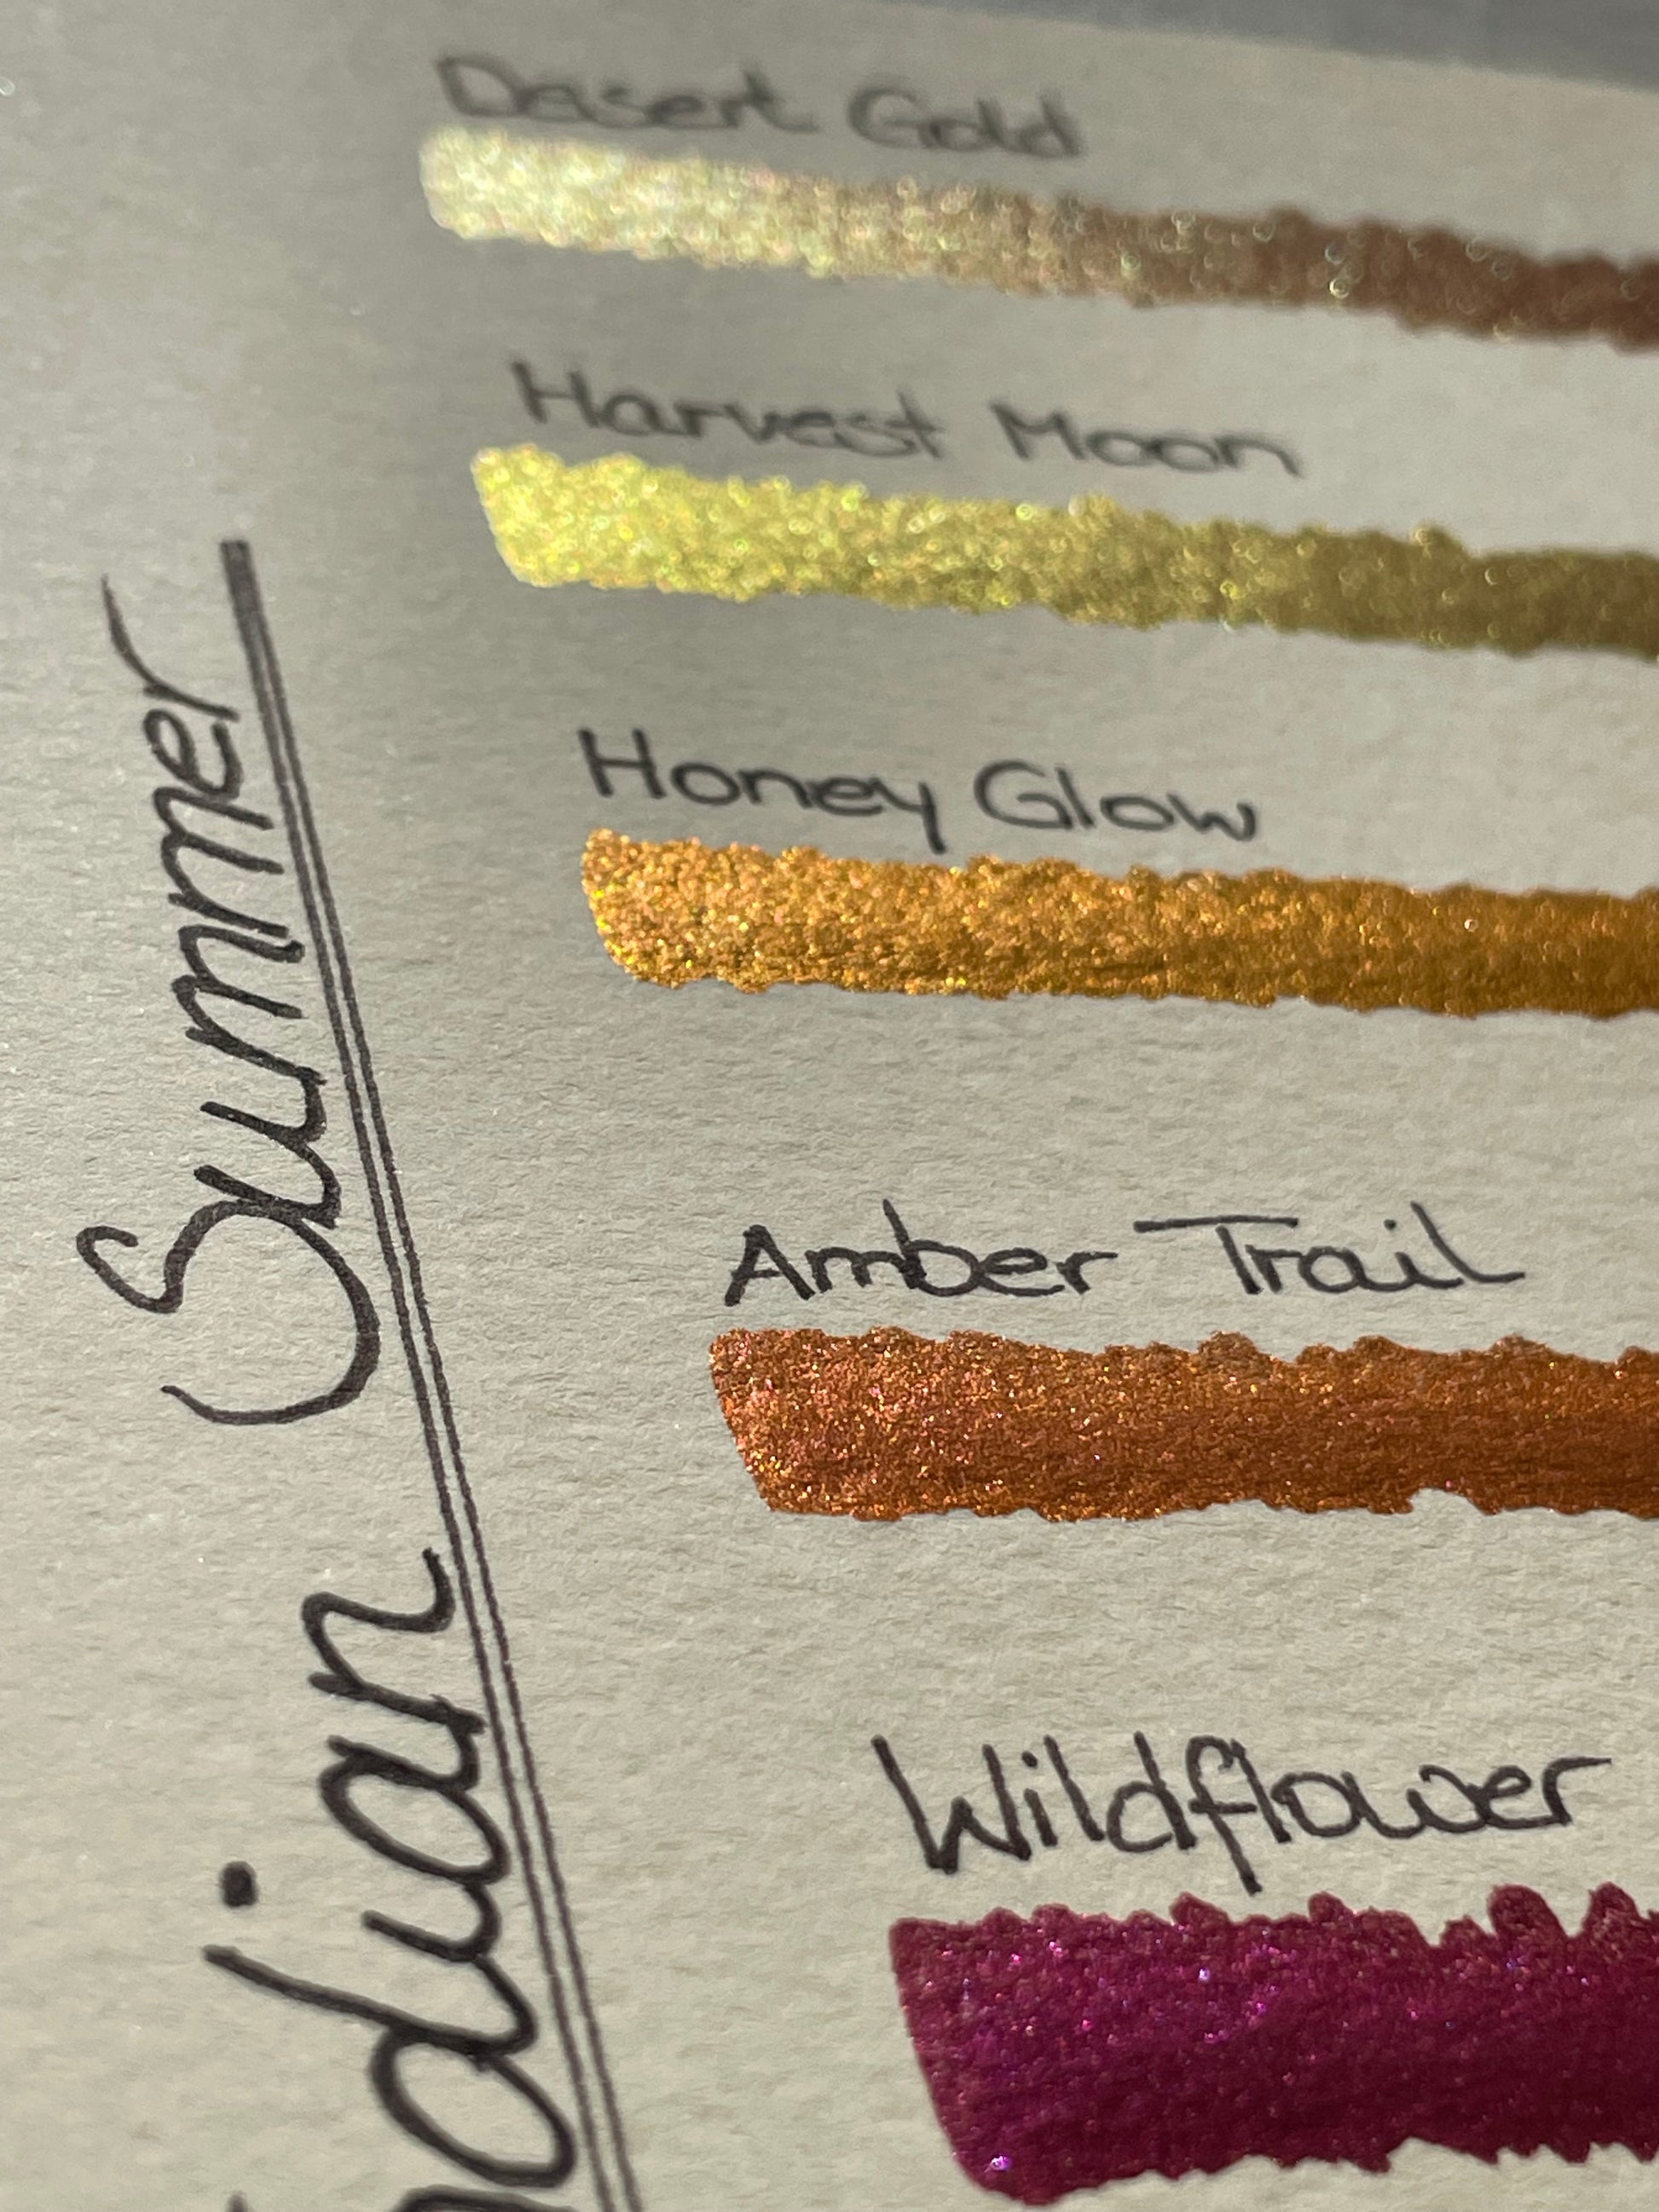 Desert Gold
Harvest Moon
Honey Glow
Amber Trail
Wildflower
Summer